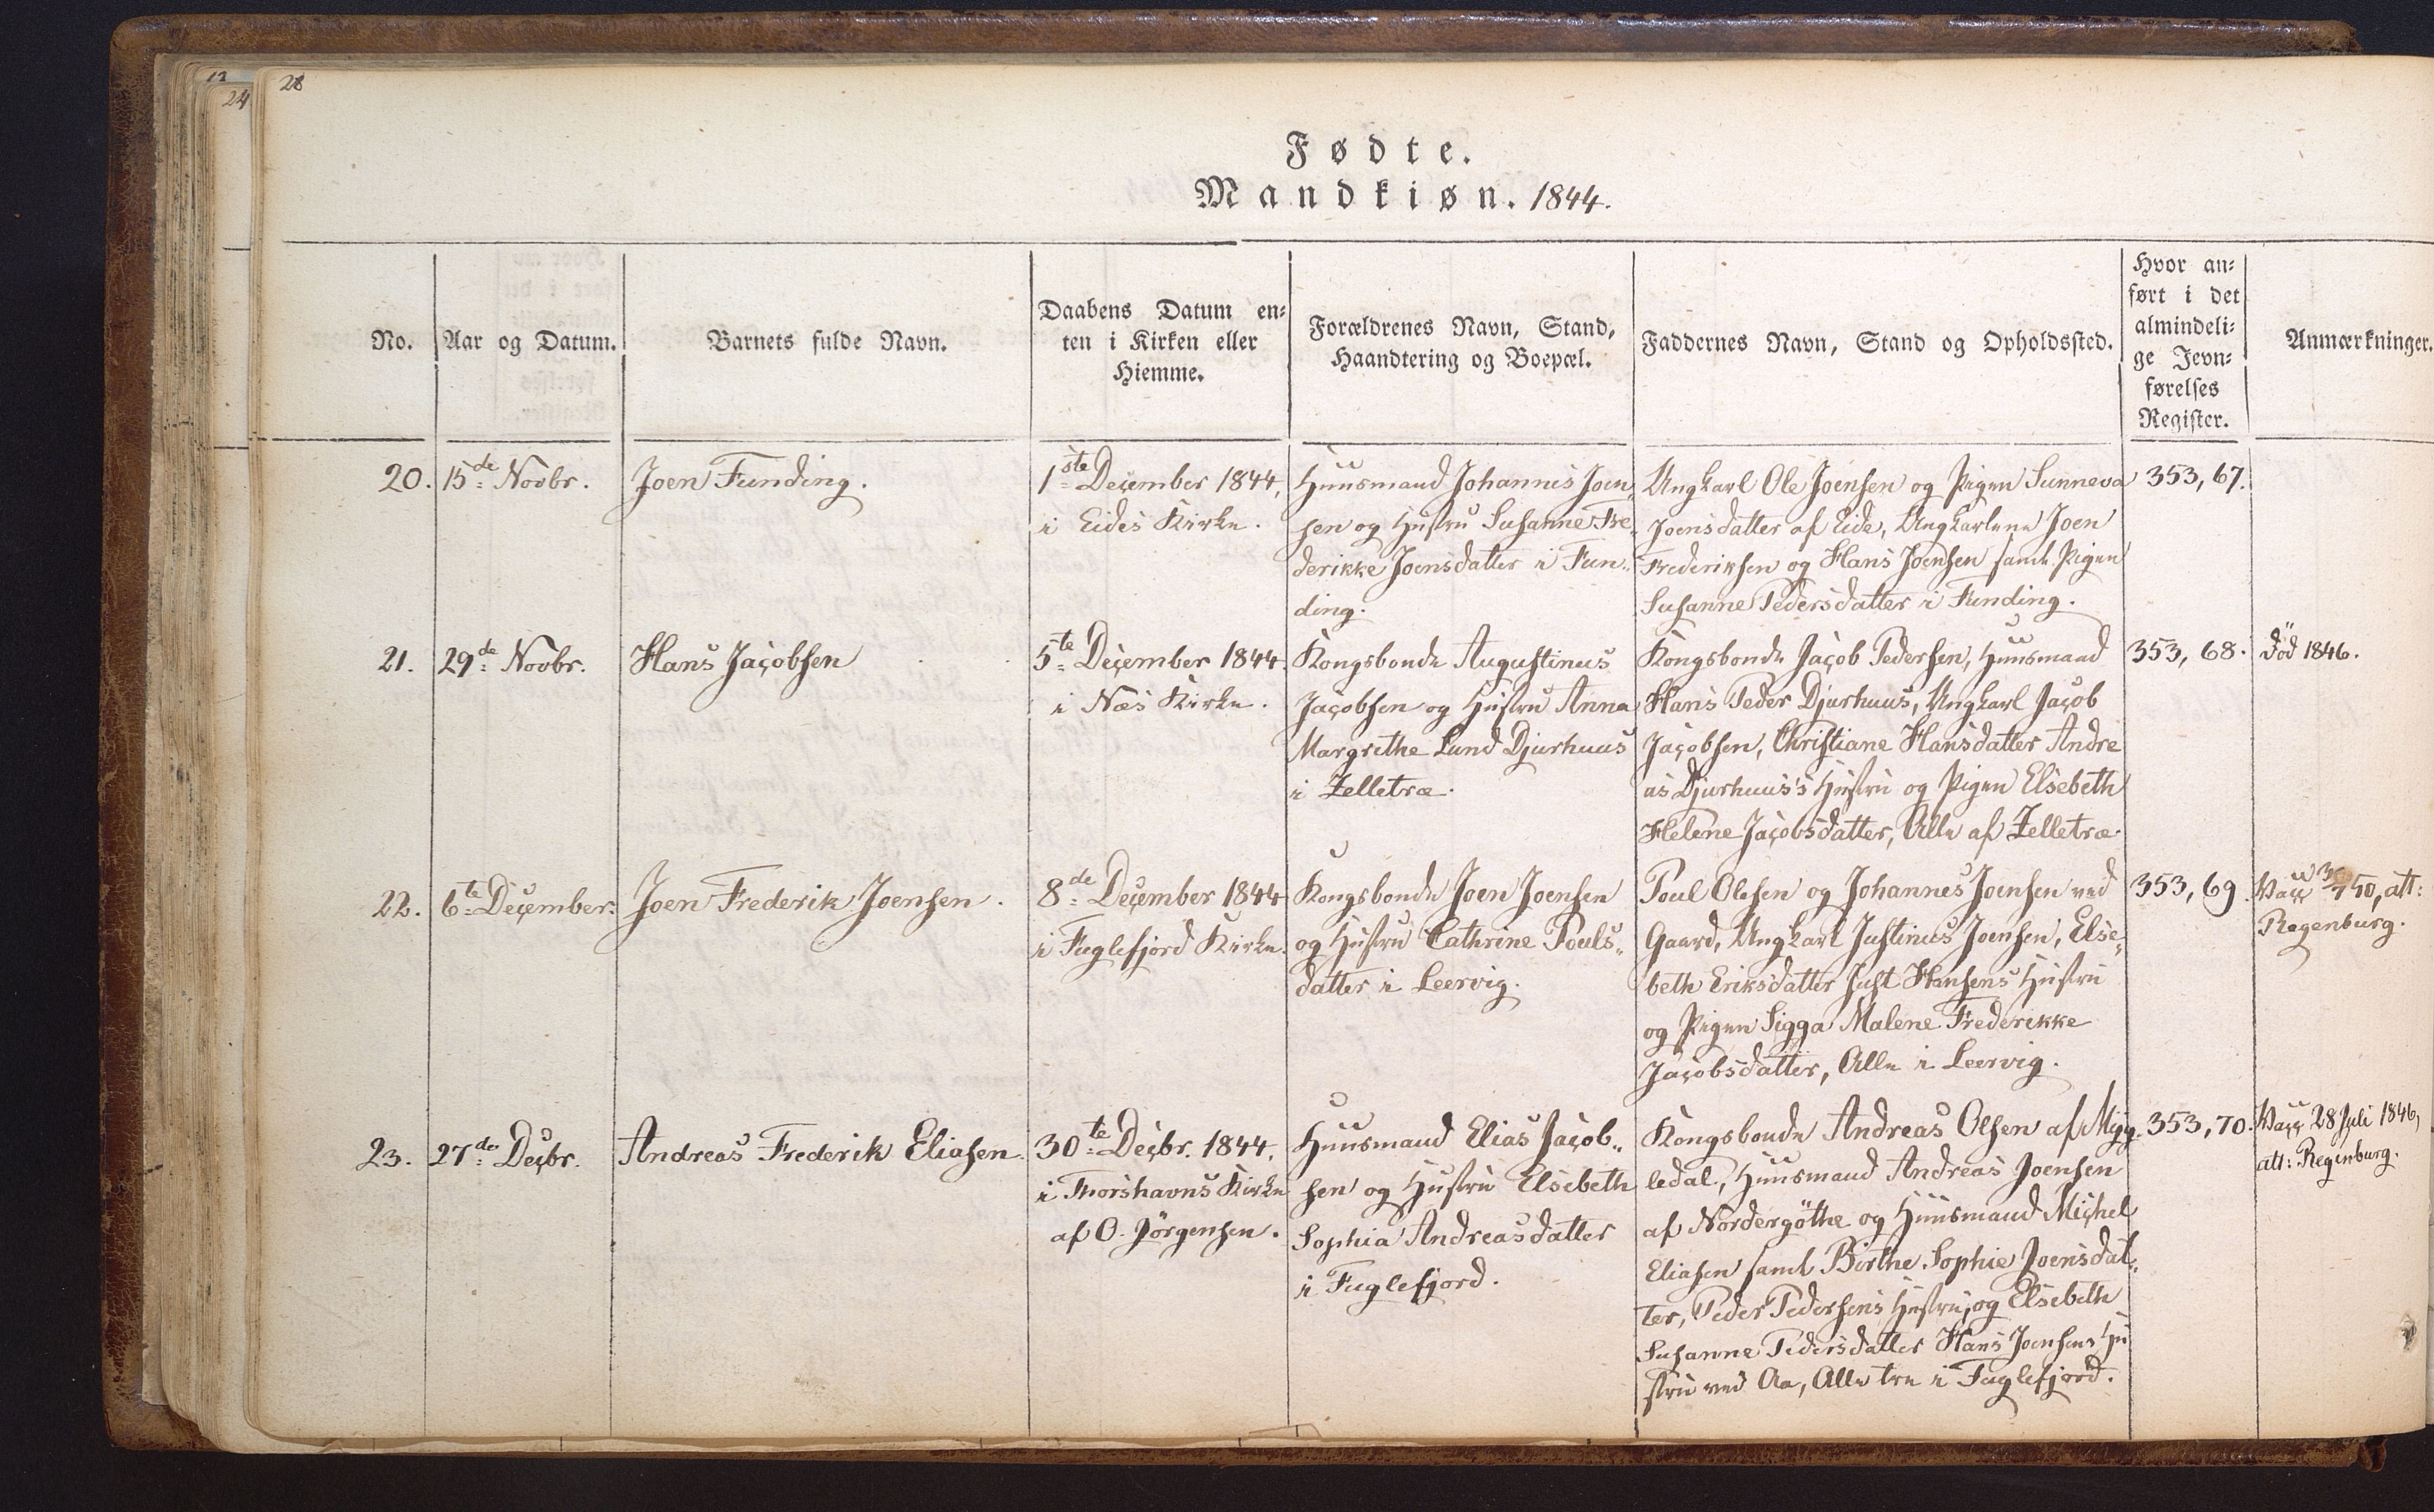 12
24
28
Fødte.
Mandkiøn. 1844.
No.
Aar og Datum.
Barnets fulde Navn.
Daabens Datum en-
ten i Kirken eller
Hiemme.
Forældrenes Navn, Stand,
Haandtering og Boepæl.
Faddernes Navn, Stand og Opholdssted.
Hvor an-
ført i det
almindeli-
ge Jevn-
førelses
Register.
Anmærkninger.
20.
15de Novbr.
Joen Funding.
1ste December 1844,
i Eides Kirke.
Huusmand Johannes Joen,,
sen og Hustru Susanne Fre,,
derikke Joensdatter i Fun,,
ding.
Ungkarl Ole Joensen og Pigen Sunneva
Joensdatter af Eide, Ungkarlene Joen
Frederiksen og Hans Joensen samt Pigen
Susanne Pedersdatter i Funding.
353, 67.
21.
29de Novbr.
Hans Jacobsen
5te December 1844
i Næs Kirke.
Kongsbonde Augustinus
Jacobsen og Hustru Anna
Margrethe Lund Djurhuus
i Zelletræ.
Kongsbonde Jacob Pedersen, Huusmand
Hans Peder Djurhuus, Ungkarl Jacob
Jacobsen, Christiane Hansdatter Andre
as Djurhuus's Hustru og Pigen Elsebeth
Helene Jacobsdatter, Alle af Zelletræ.
353, 68.
død 1846.
22.
6te December.
Joen Frederik Joensen.
8de December 1844
i Fuglefjord Kirke.
Kongsbonde Joen Joensen
og Hustru Cathrine Pouls,,
datter i Leervig.
Poul Olesen og Johannes Joensen ved
Gaard, Ungkarl Justinus Joensen, Else,,
beth Eriksdatter Just Hansens Hustru
og Pigen Sigga Malene Frederikke
Jacobsdatter, Alle i Leervig.
353, 69.
Vacc 50, att:
Regenburg.
23.
27de Decbr.
Andreas Frederik Eliasen.
30te Decbr. 1844,
i Thorshavns Kirke
af O. Jörgensen.
Huusmand Elias Jacob,,
sen og Hustru Elsebeth
Sophia Andreasdatter
i Fuglefjord.
Kongsbonde Andreas Olsen af Myg,,
ledal, Huusmand Andreas Joensen
af Nordergöthe og Huusmand Michel
Eliasen samt Birthe Sophie Joensdat,,
ter, Peder Pedersens Hustru, og Elsebeth
Susanne Pedersdatter Hans Joensens Hu
stru ved Aa, Alle tre i Fuglefjord.
353, 70.
Vacc 28 Juli 1846,
att: Regenburg.